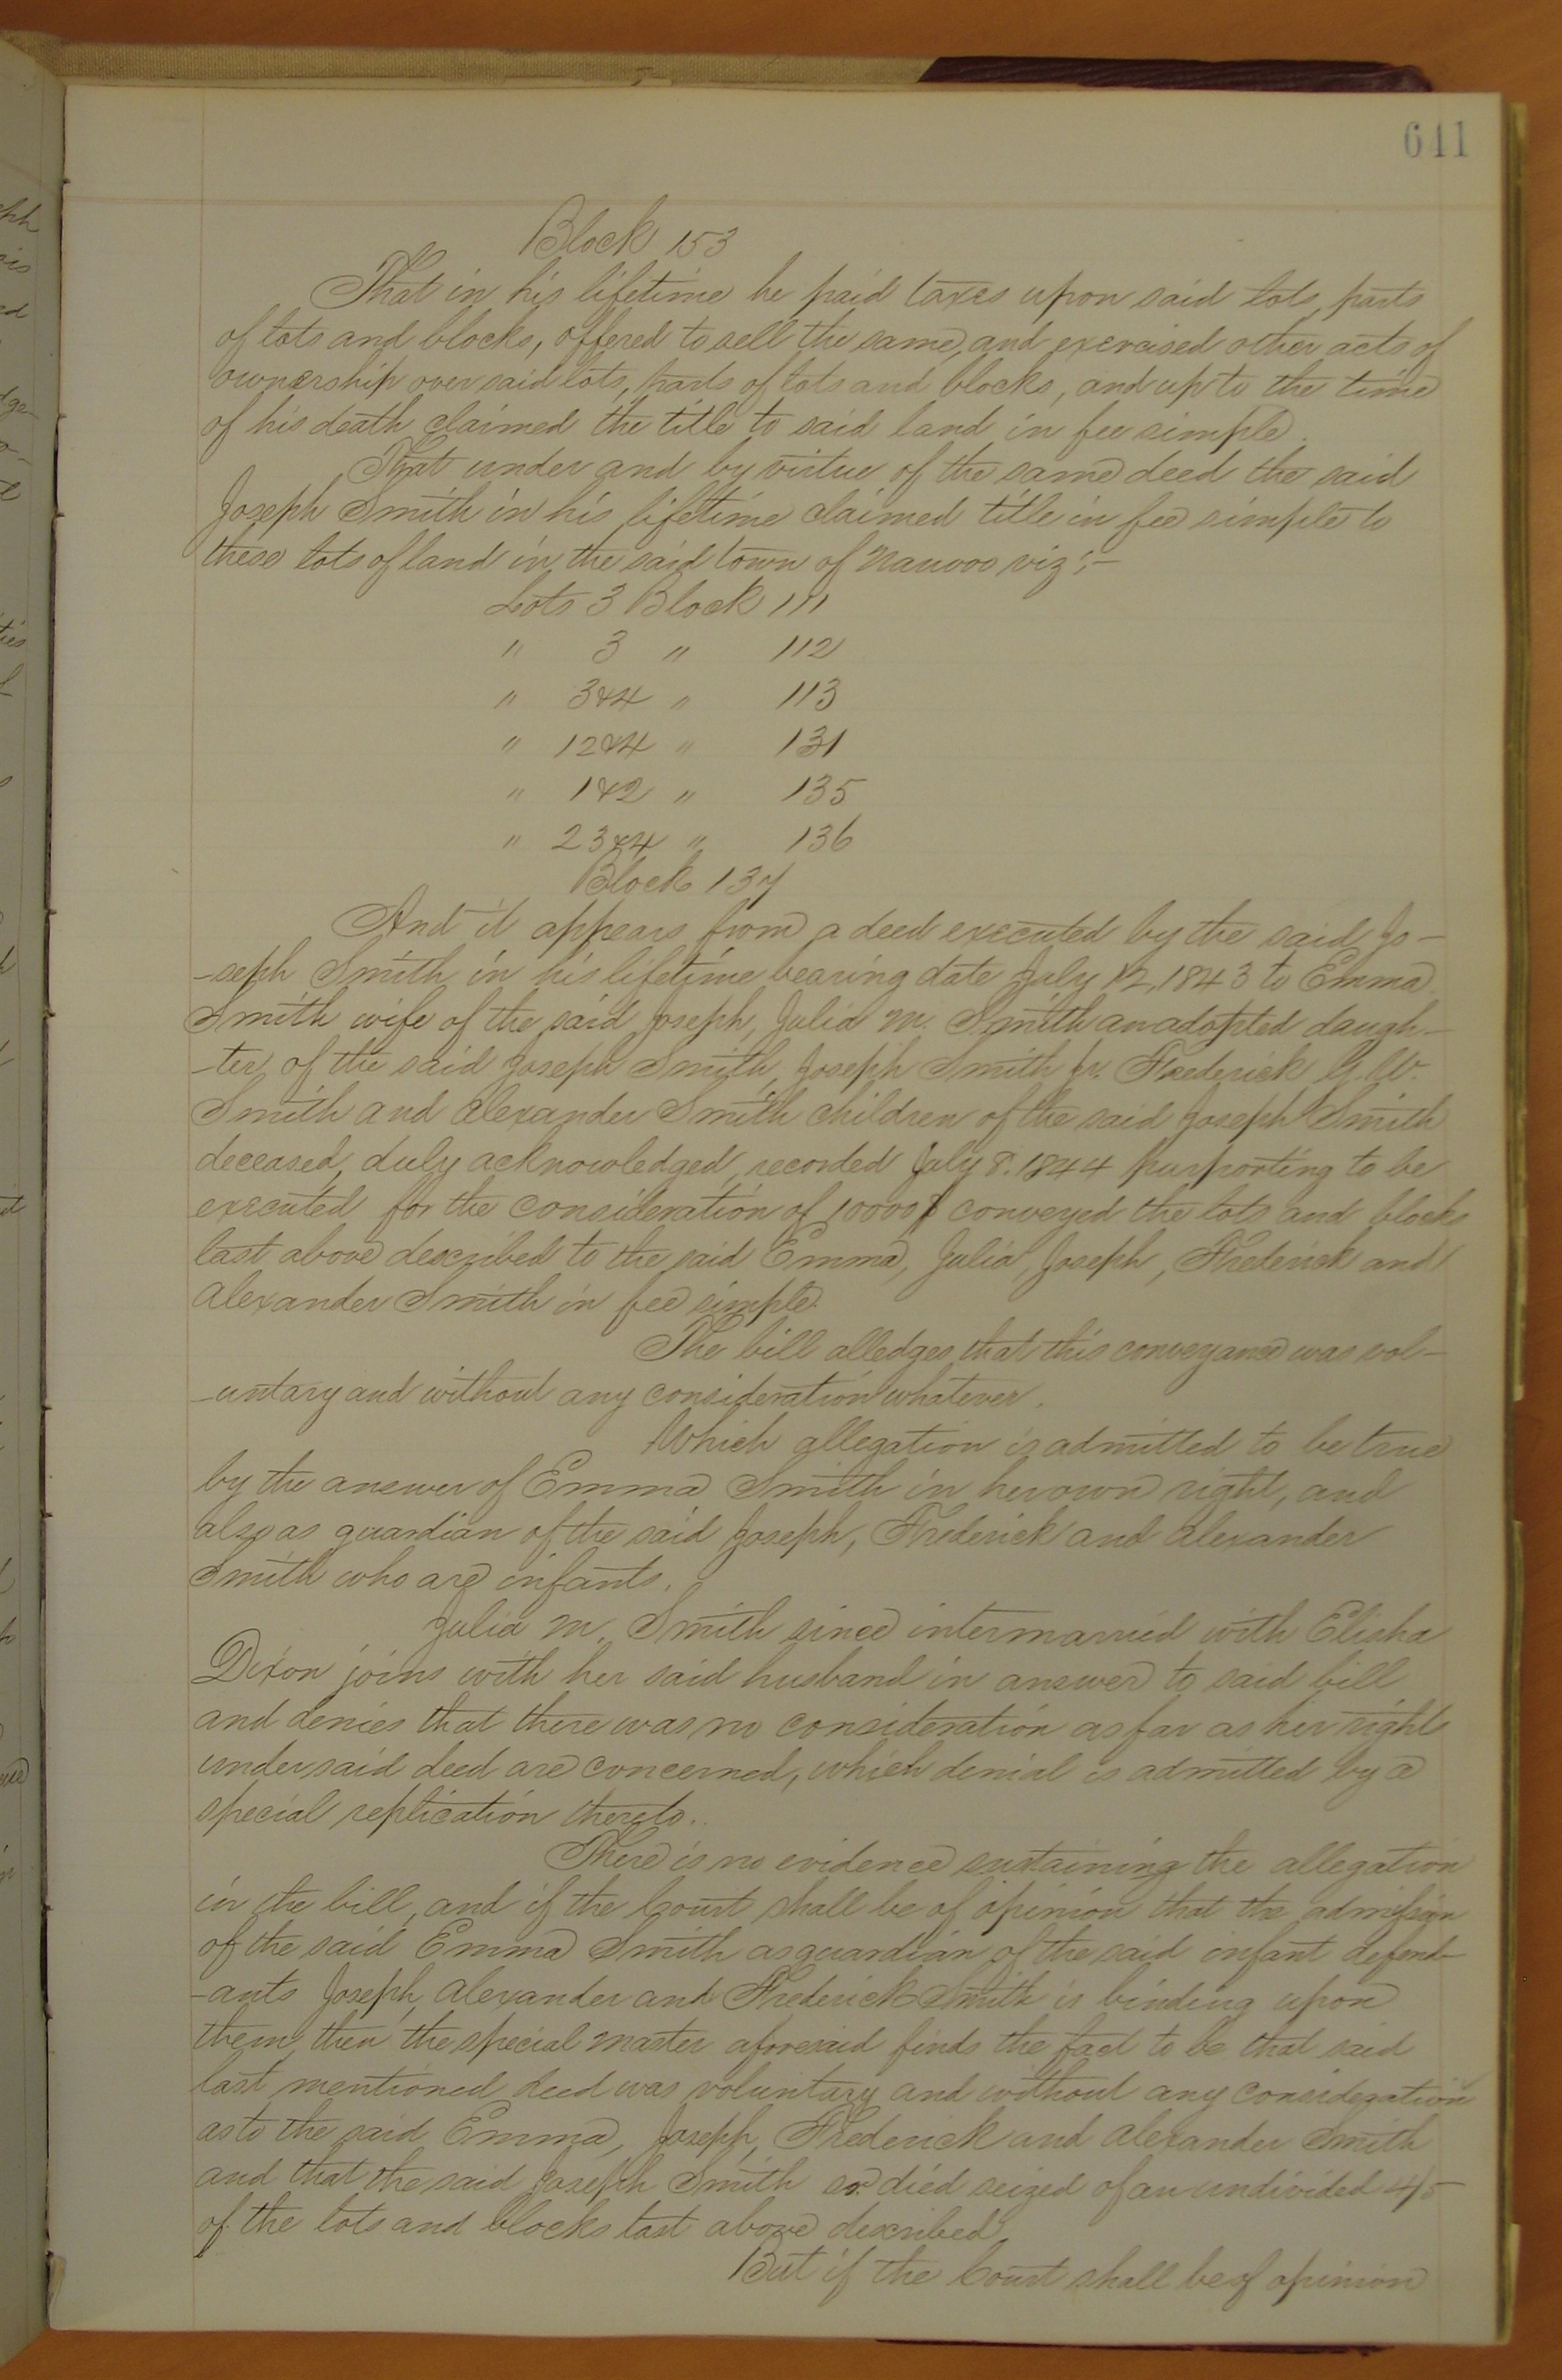 641
Block 153
That in his lifetime he paid taxes upon said lots, parts
of lots and blocks, offered to sell the same, and exercised other acts of
ownership over said lots, parts of lots and blocks, and up to the time
of his death claimed the title to said land in fee simple.
That under and by virtue of the same deed the said
Joseph Smith in his lifetime claimed title in fee simple to
these lots of land in the said town of Nauvoo viz:-
Lots 3 Block 111
" 3 " 112
" 3&4 " 113
" 12&4 " 131
" 1&2 " 135
" 23&4 " 136
Block 137
And it appears from a deed executed by the said Jo-
-seph Smith in his lifetime bearing date July 12, 1843 to Emma
Smith wife of the said Joseph, Julia M. Smith an adopted daugh-
-ter of the said Joseph Smith, Joseph Smith Jr. Frederick G. W.
Smith and Alexander Smith children of the said Joseph Smith
deceased, duly acknowledged, recorded July 8. 1844 purporting to be
executed for the consideration of 10000$ conveyed the lots and blocks
last above described to the said Emma, Julia, Joseph, Frederick and
Alexander Smith in fee simple.
The bill alledges that this conveyance was vol-
-untary and without any consideration whatever.
Which allegation is admitted to be true
by the answer of Emma Smith in her own right, and
also as guardian of the said Joseph, Frederick and Alexander
Smith who are infants.
Julia M. Smith since intermarried with Elisha
Dixon joins with her said husband in answer to said bill
and denies that there was no consideration as far as her rights
under said deed are concerned, which denial is admitted by a
special replication thereto.
There is no evidence sustaining the allegation
in the bill, and if the Court shall be of opinion that the admission
of the said Emma Smith as guardian of the said infant defend-
-ants Joseph, Alexander and Frederick Smith is binding upon
them, then the special master aforesaid finds the fact to be that said
last mentioned deed was voluntary and without any consideration
as to the said Emma, Joseph, Frederick and Alexander Smith
and that the said Joseph Smith sr. died seized of an undivided 4/5
of the lots and blocks last above described.
But if the Court shall be of opinion